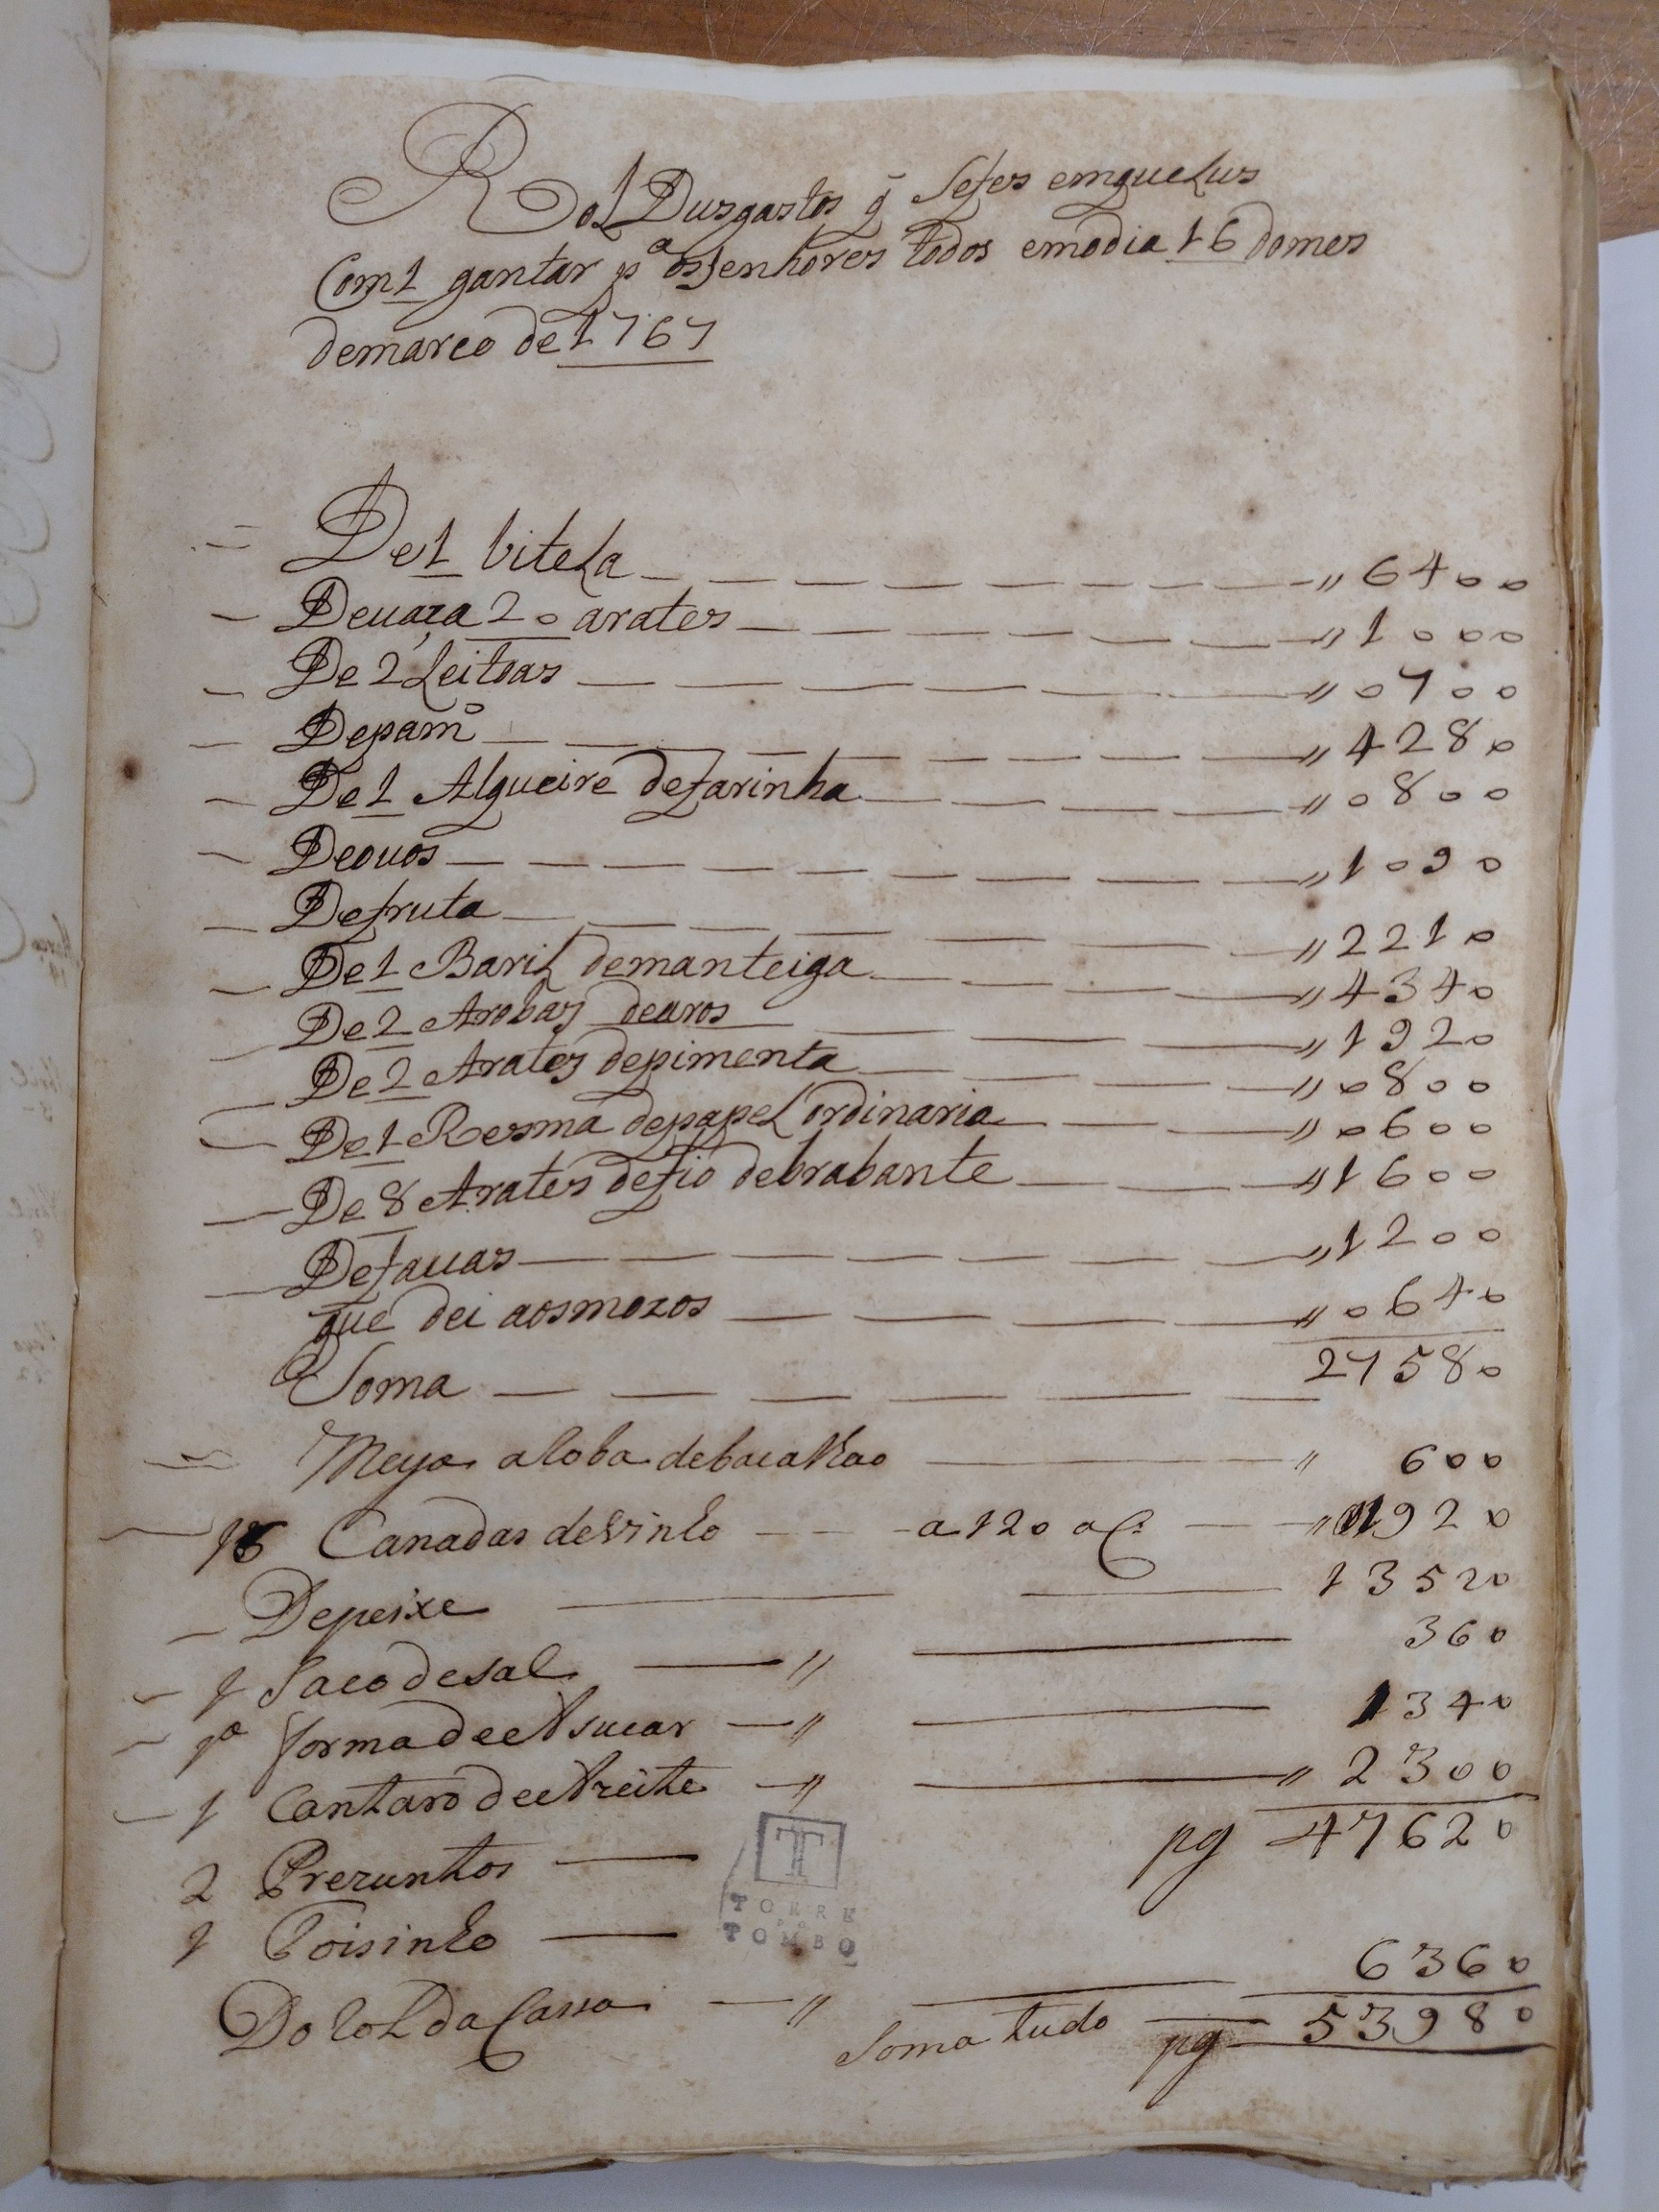 Rol Dusgastos q̃ sefes emqueLus
Com 1 gantar pª ossenhores todos emodia 16 domes
demarco de 1767
De 1 biteLa 6400
Deuaca 20 arates 1000
De 2 Leitoas 0700
Depam 4280
De 1 Algueire defarinha 0800
Deouos 1090
Defruta 2210
De 1 BariL demanteiga 4340
De 2 Arobas dearos 1920
De 2 Arates depimenta 0800
De 1 Resma depapeL ordinaria 0600
De 8 Arates defio debrabante 1600
Defauas 1200
que dei aosmozos 0640
Soma 27580
Meya aloba debacalhao 600
16 Canadas devinho a 120 1920
Depeixe 13520
1 Saco desal 360
1ª forma de Asucar 1340
1 Cantaro de Azeite 2300
2 Prezuntos pg 47620
1 Toisinho
Do Rol da Cassa 6360
Soma tudo pg 53980
T
TORRE
DO
TOMBO